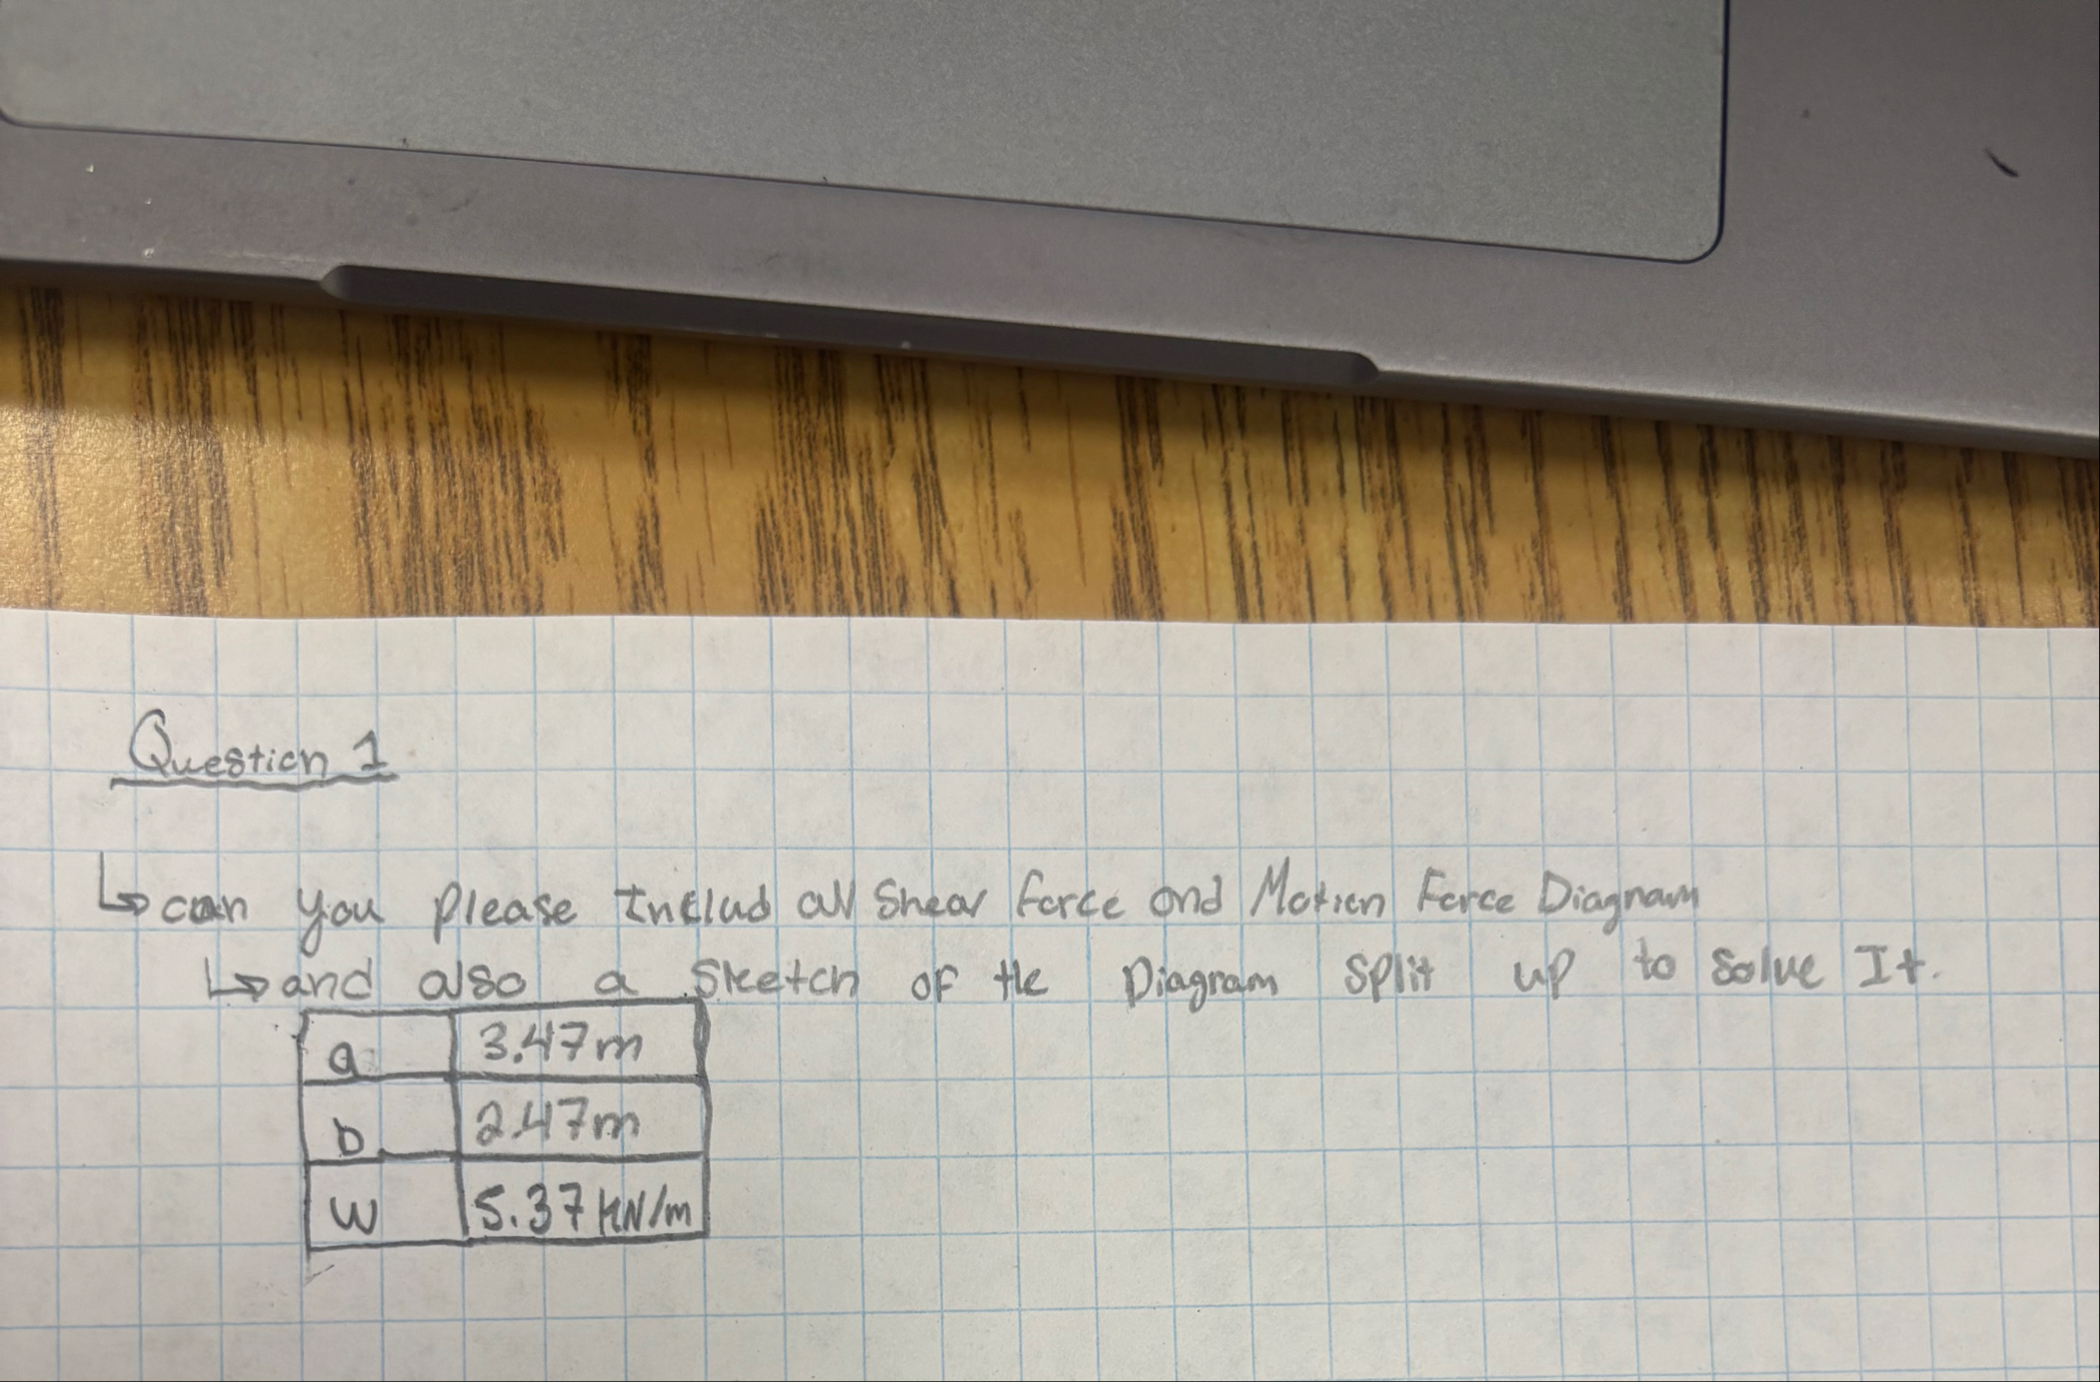 Question 1
↳ can you please Includ all Shear force and Motion Force Diagram
↳ and also a Sketch of the Diagram split up to solve It.
a 3.47m
b 2.47m
w 5.37 kN/m